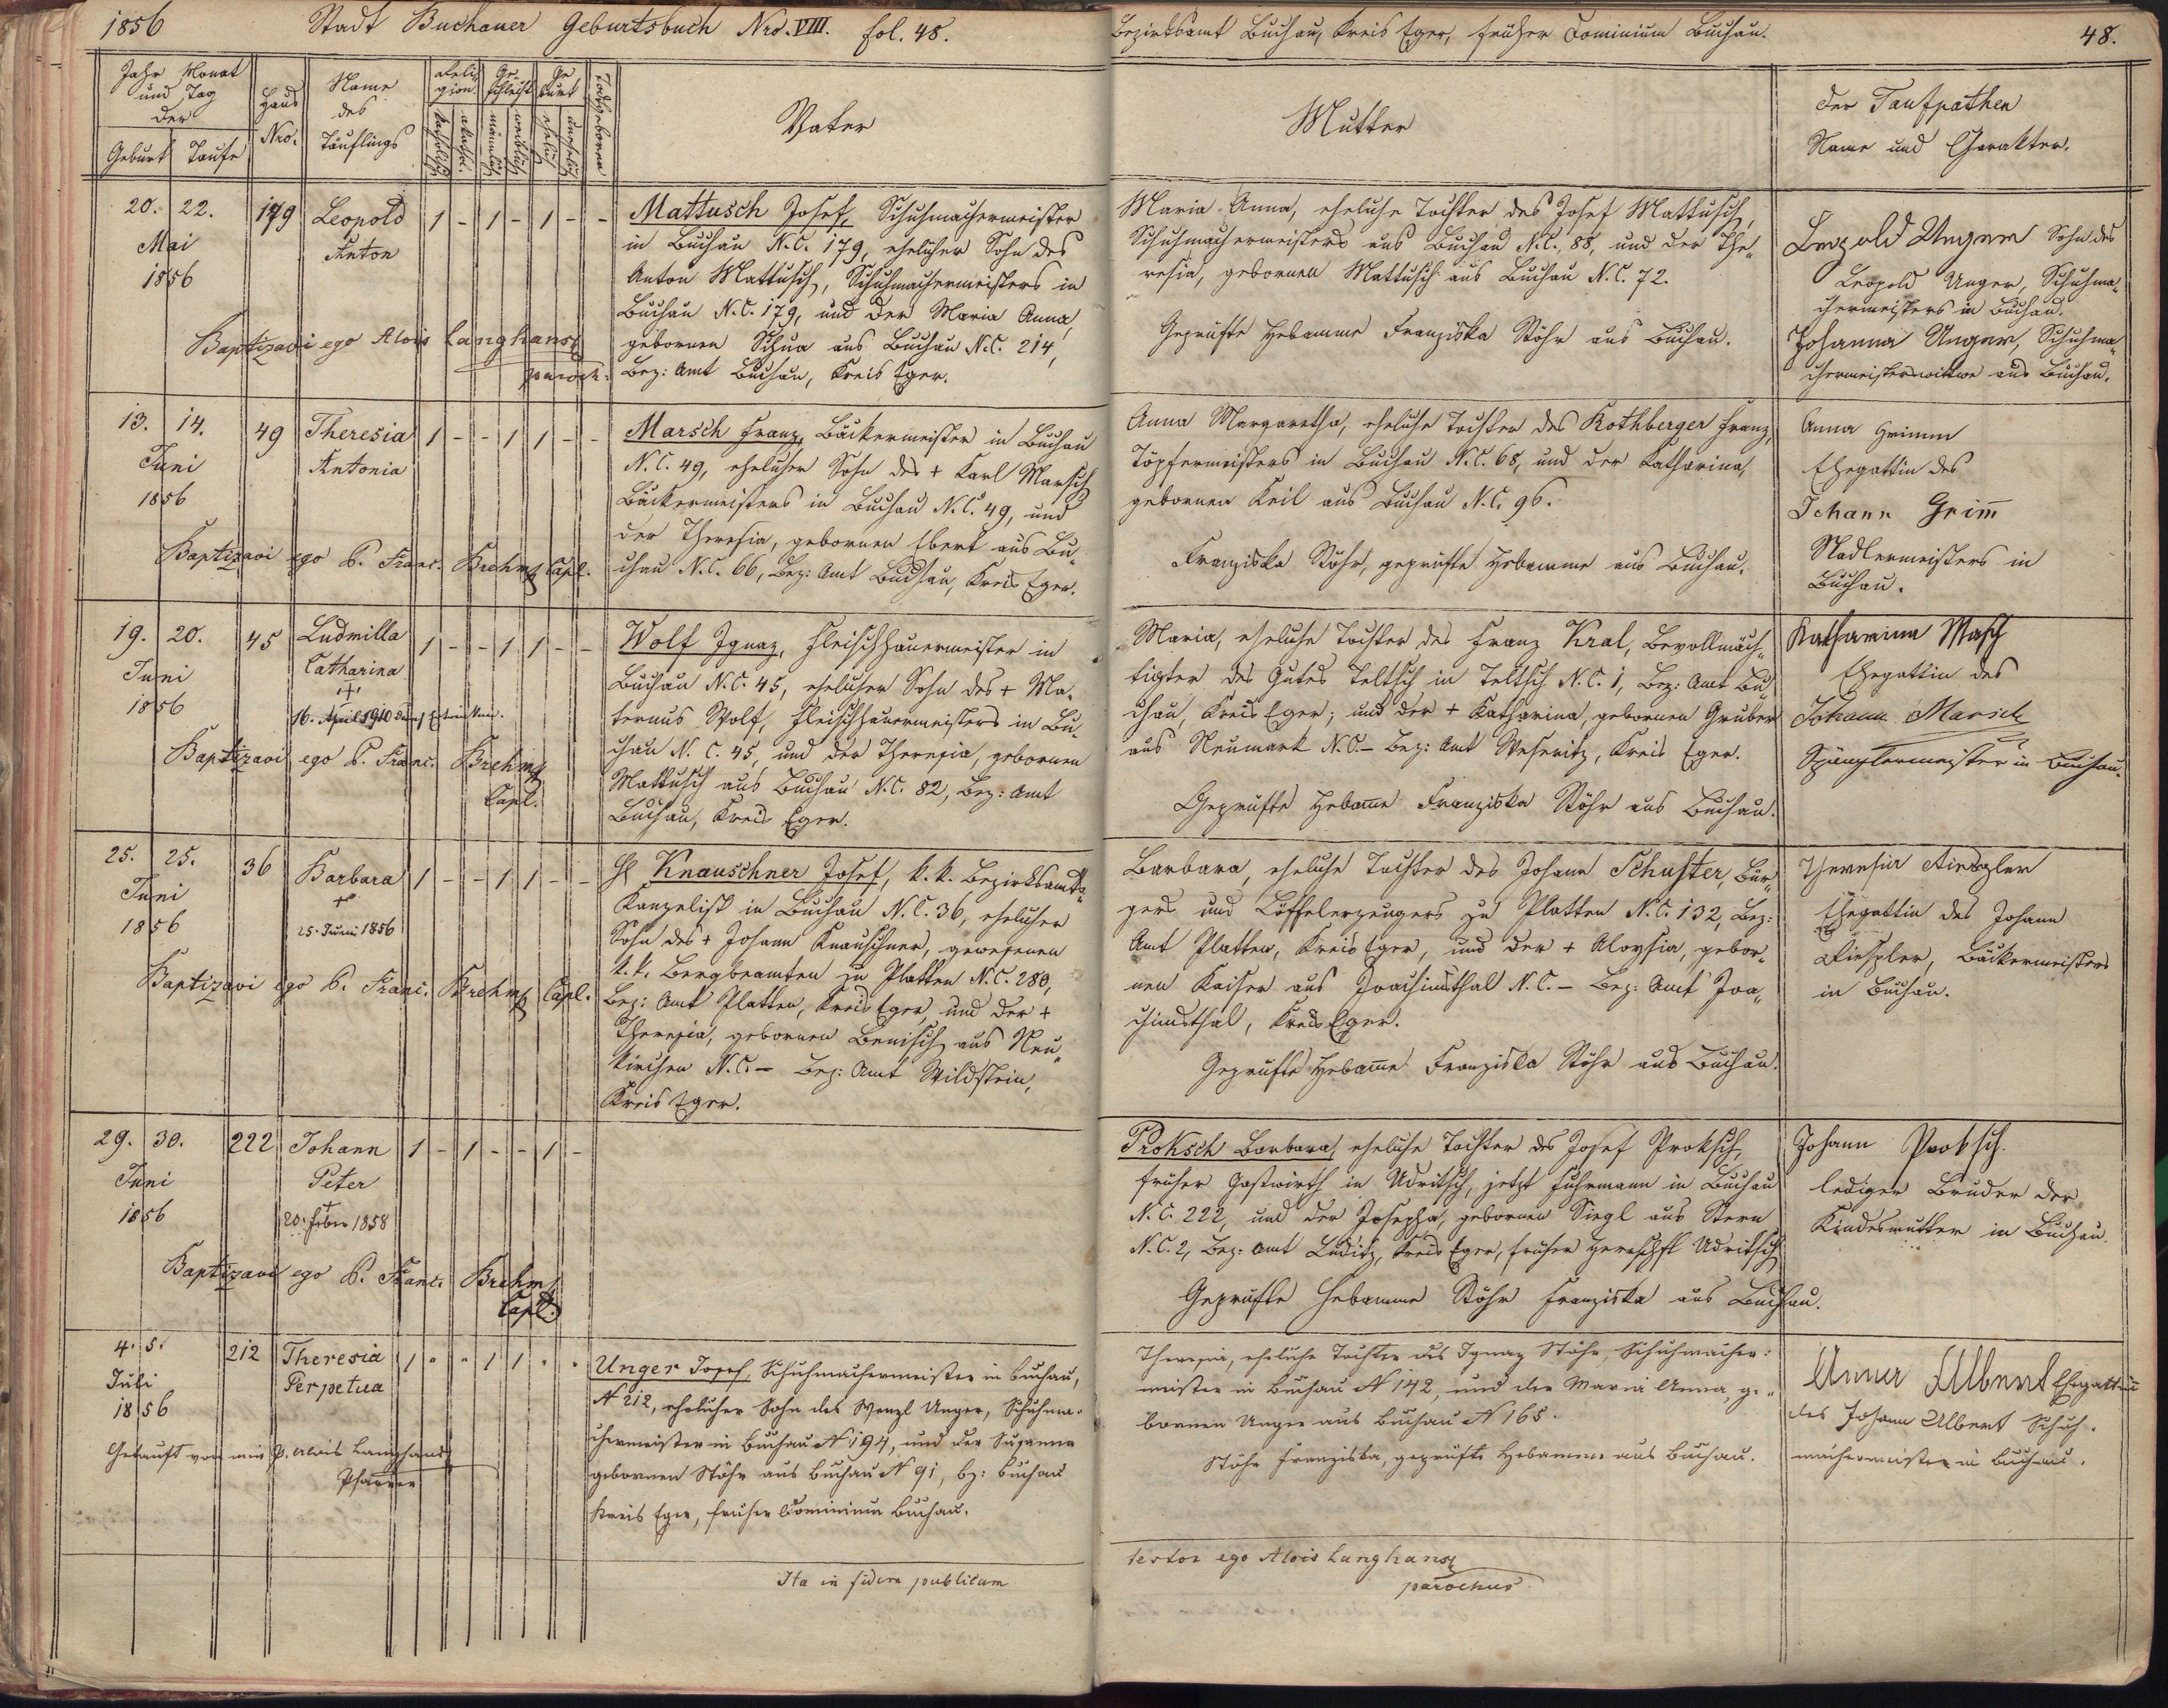 1856 Stadt Buchauer Geburtsbuch Nro. VIII. fol. 48.
Jahr Monat
und Tag
der
Geburt Taufe
Haus
Nro.
Name
des
Täuflings
Reli-
gion
katholisch
Ge-
schlecht
männlich
weiblich
Ge
burt
ehelich
unehelich
Todtgeboren
Vater
20. 22.
Mai
1856
179
Leopold
Anton
1 - 1 - 1 - -
Baptizavi ego Alois Langhans
paroch:
Mattusch Josef, Schuhmachermeister
in Buchau N.C. 179, ehelicher Sohn des
Anton Mattusch, Schuhmachermeisters in
Buchau N.C. 179, und der Maria Anna,
gebornen Schua aus Buchau N.C. 214,
Bez: Amt Buchau, Kreis Eger.
13. 14.
Juni
1856
49
Theresia
Antonia
1 - - 1 1 - -
Baptizavi ego P. Franc. Brehm Capl.
Marsch Franz, Bäckermeister in Buchau
N.C. 49, ehelicher Sohn des + Karl Marsch
Bäckermeisters in Buchau N.C. 49, und
der Theresia, gebornen Ebert aus Bu„
chau N.C. 66, Bez: Amt Buchau, Kreis Eger.
19. 20.
Juni
1856
45
Ludmilla
Catharina
+
16. April 1910 durch Ertrinken.
1 - - 1 1 - -
Baptizavi ego P. Franc. Brehm
Capl.
Wolf Ignaz, Fleischhauermeister in
Buchau N.C. 45, ehelicher Sohn des + Ma„
ternus Wolf, Fleischhauermeisters in Bu„
chau N. C. 45, und der Theresia, gebornen
Mattusch aus Buchau N.C. 82, Bez: Amt
Buchau, Kreis Eger.
25. 25.
Juni
1856
36
Barbara
+
25. Juni 1856
1 - - 1 1 - -
Baptizavi ego P. Franc. Brehm Capl.
H Knauschner Josef, k. k. Bezirksamts„
Kanzelist in Buchau N.C. 36, ehelicher
Sohn des + Johann Knauschner, gewesenen
k. k. Bergbeamten zu Platten N.C. 280,
Bez: Amt Platten, Kreis Eger, und der +
Theresia, gebornen Benisch aus Neu„
kirchen N.C. – Bez: Amt Wildstein,
Kreis Eger.
29. 30.
Juni
1856
222
Johann
Peter
+
20. Feber 1858
1 - 1 - - 1 -
Baptizavi ego P. Franc. Brehm
Capl.
4. 5.
Juli
1856
212
Theresia
Perpetua
1 " " 1 1 " "
Getauft von mir P. Alois Langhans
Pfarrer
Unger Josef, Schuhmachermeister in Buchau,
N 212, ehelicher Sohn des Wenzl Unger, Schuhma-
chermeister in Buchau N 194, und der Susanna
gebornen Stöhr aus Buchau N 91, Bz: Buchau
Kreis Eger, früher Dominium Buchau.
Ita in fidem publicam
Bezirksamt Buchau, Kreis Eger, früher Dominium Buchau. 48.
Mutter
Der Taufpathen
Name und Charakter.
Maria Anna, eheliche Tochter des Josef Mattusch,
Schuhmachermeisters aus Buchau N.C. 88, und der The„
resia, gebornen Mattusch aus Buchau N.C. 72.
Geprüfte Hebamme Franziska Stöhr aus Buchau.
Leopold Unger Sohn des
Leopold Unger, Schuhma„
chermeisters in Buchau.
Johanna Unger, Schuhma„
chermeisterswittwe aus Buchau.
Anna Margaretha, eheliche Tochter des Rothberger Franz,
Töpfermeisters in Buchau N.C. 68, und der Katharina,
gebornen Keil aus Buchau N.C. 96.
Franziska Stöhr, geprüfte Hebamme aus Buchau.
Anna Grimm
Ehegattin des
Johann Grim̄
Nadlermeisters in
Buchau.
Maria, eheliche Tochter des Franz Kral, Bevollmäch„
tigter des Gutes Teltsch in Teltsch N.C. 1, Bez: Amt Bu„
chau, Kreis Eger; und der + Katharina, gebornen Gruber
aus Neumark N.C. – Bez: Amt Weseritz, Kreis Eger.
Geprüfte Hebam̄e Franziska Stöhr aus Buchau.
Katharina Masch
Ehegattin des
Johann Marsch
Spänglermeister in Buchau.
Barbara, eheliche Tochter des Johann Schuster, Bür„
gers und Löffelerzeugers zu Platten N.C. 132, Bez:
Amt Platten, Kreis Eger, und der + Aloysia, gebor„
nen Kaiser aus Joachimsthal N.C. – Bez: Amt Joa„
chimsthal, Kreis Eger.
Geprüfte Hebam̄e Franziska Stöhr aus Buchau.
Theresia
Ehegattin des Johann
Bäckermeisters
in Buchau.
Proksch Barbara, eheliche Tochter des Josef Proksch,
früher Gastwirth in Udritsch, jetzt Fuhrmann in Buchau
N.C. 222, und der Josepha, gebornen Siegl aus Stern
N.C. 2, Bez: Amt Luditz, Kreis Eger, früher Herrschft Udritsch
Geprüfte Hebamme Stöhr Franziska aus Buchau.
Johann Proksch.
lediger Bruder der
Kindesmutter in Buchau.
Theresia, eheliche Tochter des Ignaz Stöhr, Schuhmacher:
meister in Buchau N 142, und der Maria Anna, ge„
bornen Unger aus Buchau N 165.
Stöhr Franziska, geprüfte Hebamme aus Buchau.
Anna Albert Ehegattin
des Johann Albert Schuh-
machermeister in Buchau.
testor ego Alois Langhans
parochus